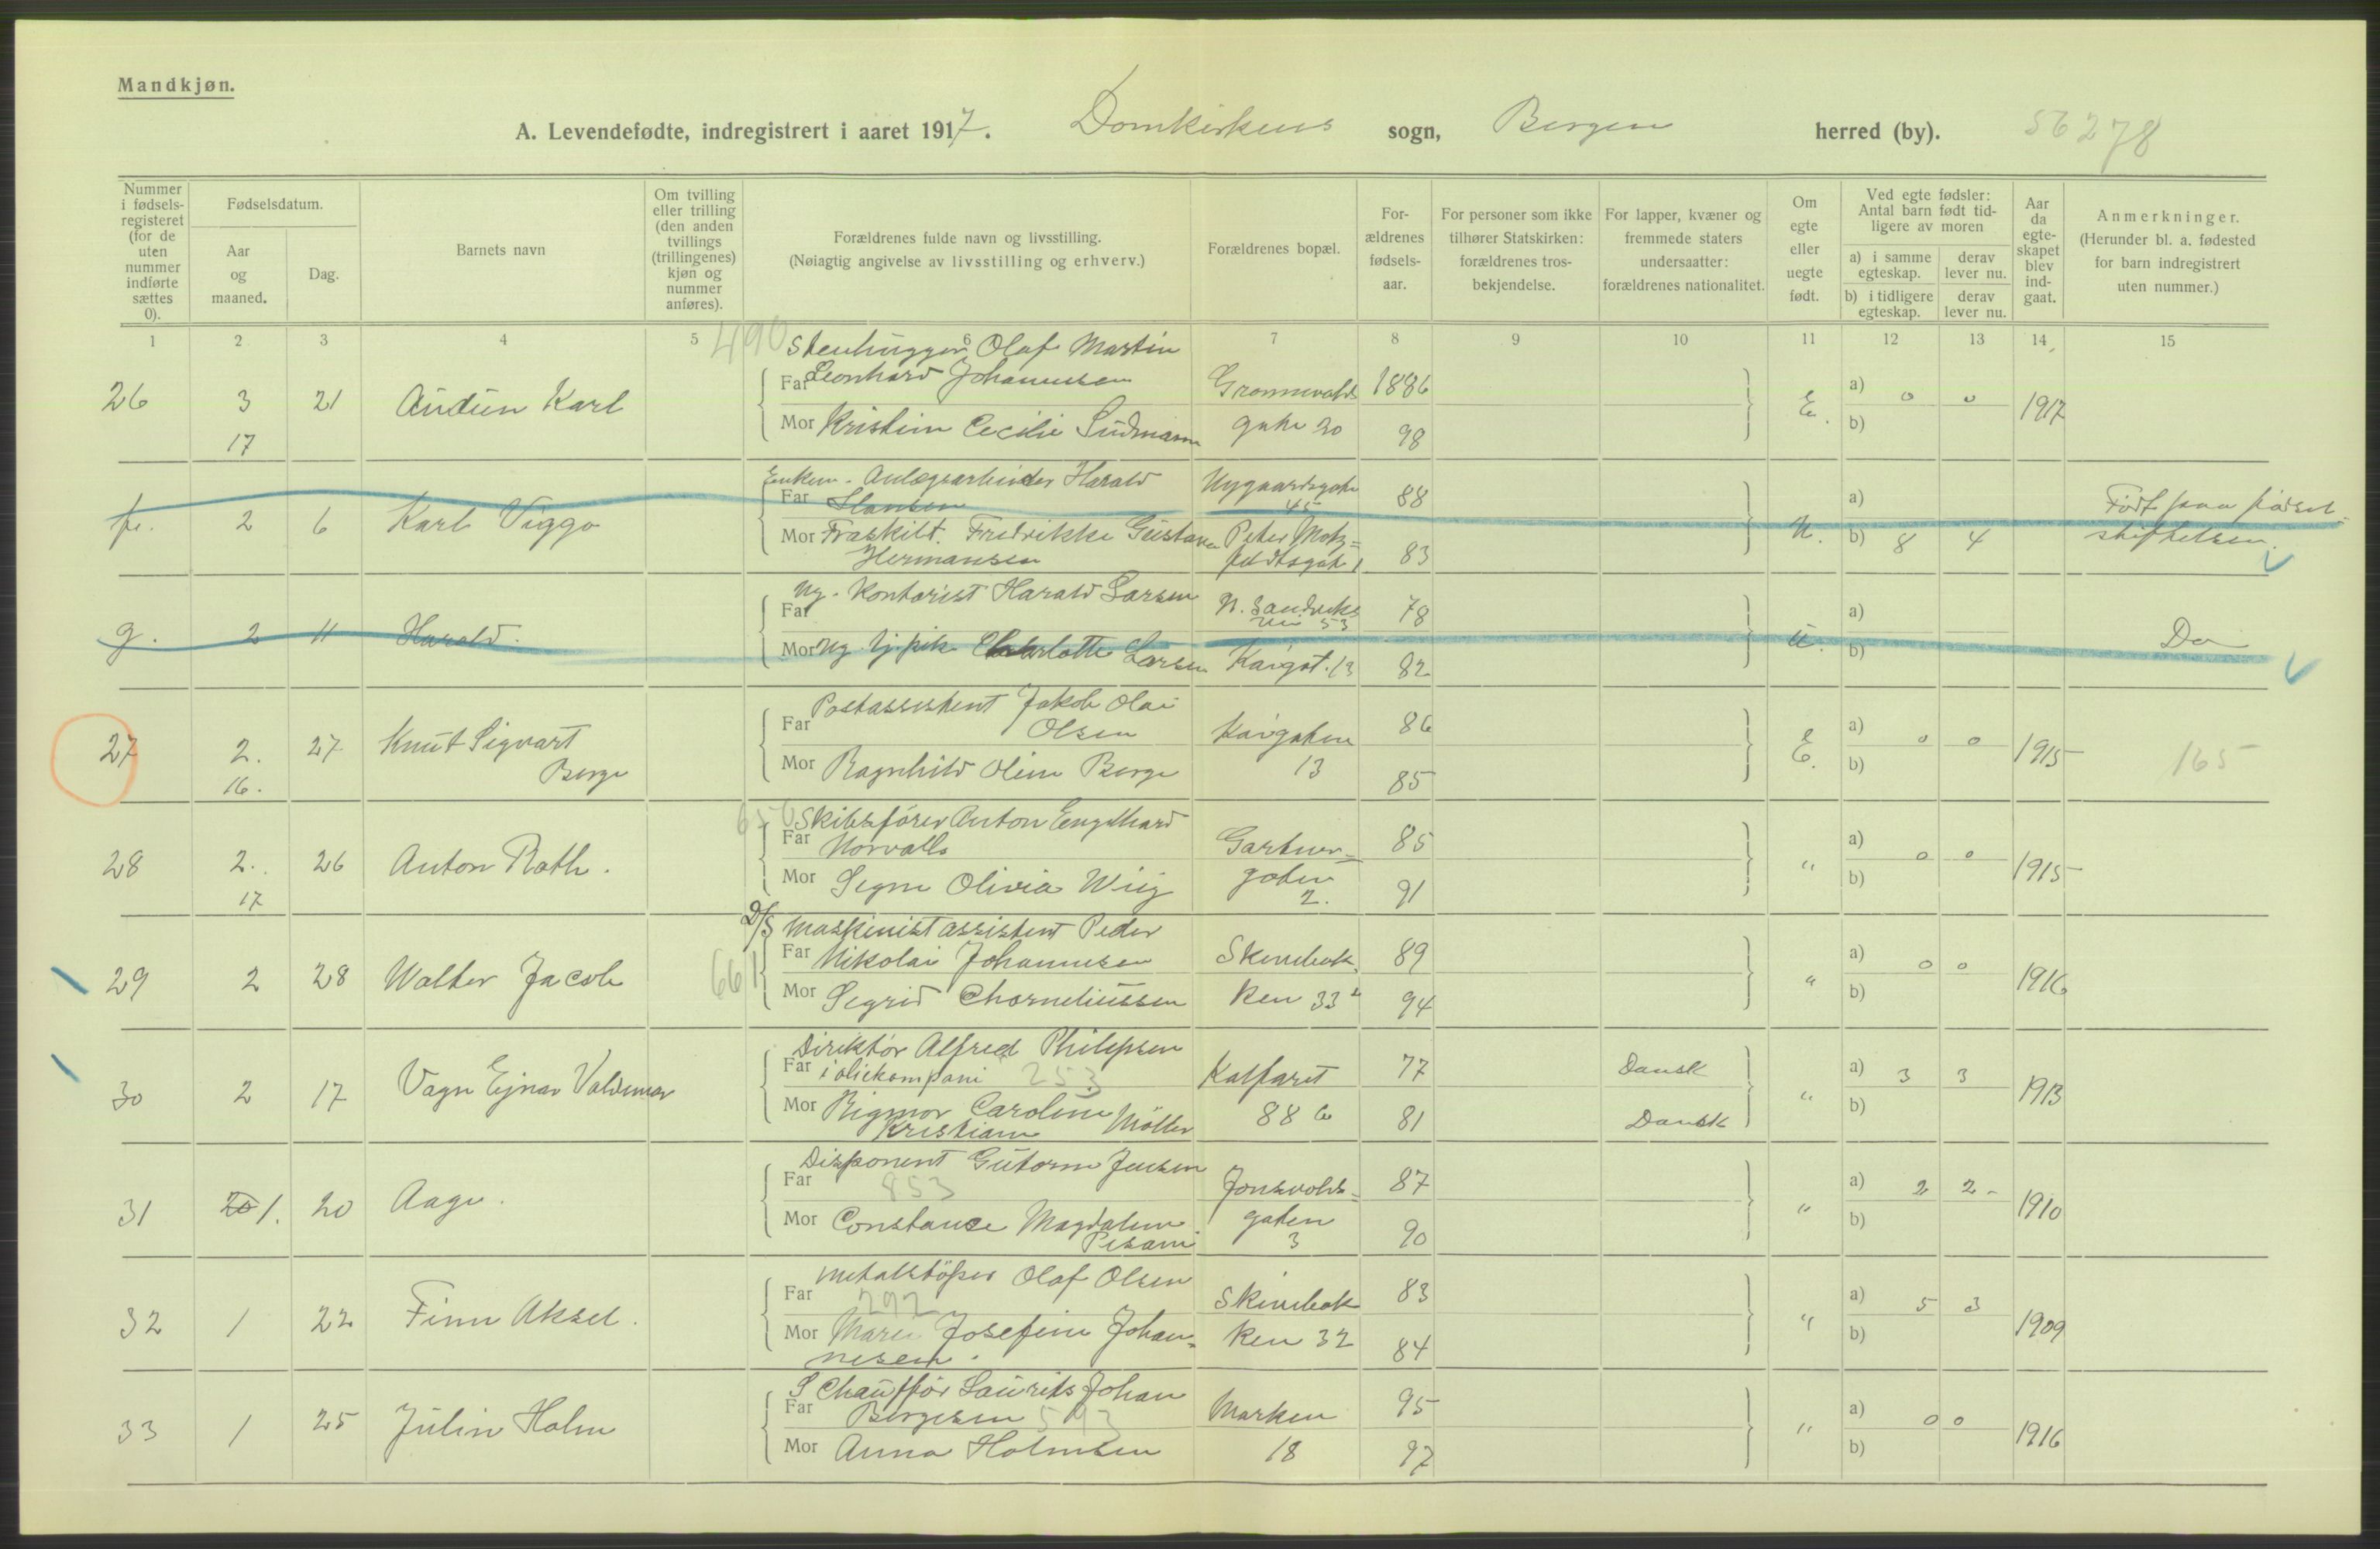 Mandkjøn.
A. Levendefødte, indregistrert i aaret 1917. Domkirkens sogn, Bergen herred (by). 56278
Nummer i fødselsregisteret (for de uten nummer indførte sættes 0).
Fødselsdatum.
Aar og maaned.
Dag.
Barnets navn
Om tvilling eller trilling (den anden tvillings (trillingenes) kjøn og nummer anføres).
Forældrenes fulde navn og livsstilling.
(Nøiagtig angivelse av livsstilling og erhverv.)
Forældrenes bopæl.
For-
ældrenes
fødsels-
aar.
For personer som ikke
tilhører Statskirken:
forældrenes tros-
bekjendelse.
For lapper, kvæner og
fremmede staters
undersaatter:
forældrenes nationalitet.
Om
egte
eller
uegte
født.
Ved egte fødsler:
Antal barn født tid-
ligere av moren
a) i samme egteskap.
derav lever nu.
b) i tidligere egteskap.
derav lever nu.
Aar
da
egte-
skapet
blev
ind-
gaat.
Anmerkninger.
(Herunder bl. a. fødested
for barn indregistrert
uten nummer.)
1 2 3 4 5 6 7 8 9 10 11 12 13 14 15
490 Stenhugger Olaf Martin
26 3 21 Audun Karl Far Leonhard Johannesen 1886 E. a) 0 0 1917
17 Mor Kristine Cecilie gate 20 98 b)
Enkem. Anlægsarbeider Harald Nygaardsgate
2 6 Karl Viggo Far Hansen 45 88 U. a) Født paa fødsels-
Mor Fraskilt. Fredrikke Gustava Peter Motz= 83 b) 8 4 stiftelsen.
Hermansen feldtsgate 1
Ug. Kontorist Harald Larsen N. Sandviks
g. 2 11 Harald. Far vei 53 78 U. a) Do
Mor Ug. tj.pike Charlotte Larsen Kaigat. 13 82 b)
Postassistent Jakob Olai
27 2. 27 Knut Sigvart Far Olsen Kaigaten 86 E. a) 0 0 1915 165
16. Berge Mor Ragnhild Oline Berge 13 85 b)
650 Skibsfører Anton Engelhard
28 2. 26 Anton Roth. Far Norvalls Gartner= 85 " a) 0 0 1915
17 Mor Signe Olivia Wiig gaten 2. 91 b)
D/S Maskinistassistent Peder
29 2 28 Walter Jacob 661 Far Nikolai Johannesen Skivebak 89 " a) 0 0 1916
Mor Sigrid Chorneliussen ken 33 94 b)
Direktør Alfred Philipsen
30 2 17 Vagn Ejnar Valdemar Far i oliekompani 253 Kalfaret 77 Dansk " a) 3 3 1913
Mor Rigmor Caroline 88 81 Dansk b)
Kristiane Möller
Disponent Gutorm Jensen
31 20 1. 20 Aage. Far 853 Jonsvolds= 87 " a) 2 2 - 1910
Mor Constance Magdalene gaten 3 90 b)
Pisani
Metalstøper Olaf Olsen
32 1 22 Finn Aksel. Far 292 Skivebak 83 " a) 5 3 1909
Mor Marie Josefine Johan= ken 32 84 b)
nesen.
Chauffør Laurits Johan
33 1 25 Julin Holm Far Børgesen 593 Marken 95 " a) 0 0 1916
Mor Anna Holmsen 18 97 b)